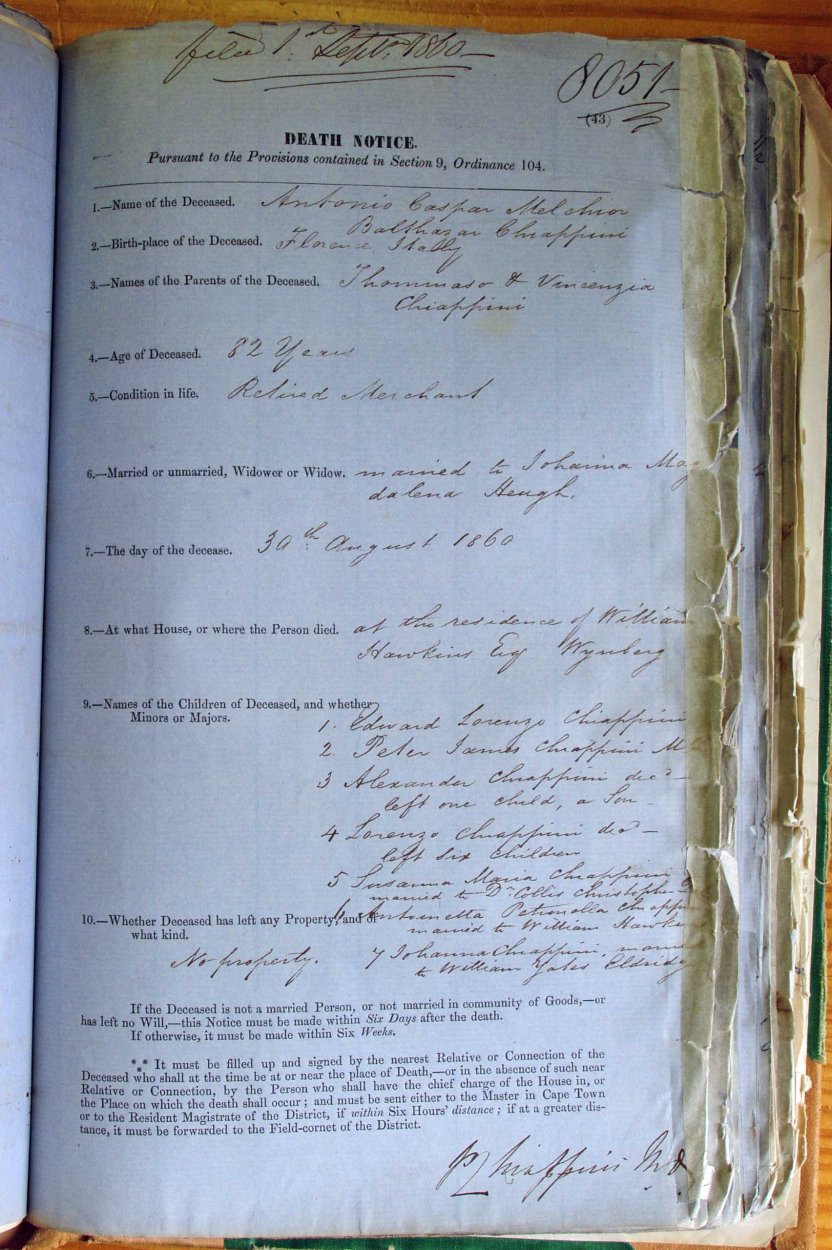 filed 1st Sept. 1860
8051
(43)
DEATH NOTICE.
Pursuant to the Provisions contained in Section 9, Ordinance 104.
1.—Name of the Deceased. Antonio Caspar Melchior
Balthazar Chiappini
2.—Birth-place of the Deceased. Florence Itally
3.—Names of the Parents of the Deceased. Thommaso & Vincenzia
Chiappini
4.—Age of Deceased. 82 Years
5.—Condition in life. Retired Merchant
6.—Married or unmarried, Widower or Widow. married to Johanna Mag
dalena Heugh.
7.—The day of the decease. 30th August 1860
8.—At what House, or where the Person died. at the residence of William
Hawkins Esq Wynberg
9.—Names of the Children of Deceased, and whether
Minors or Majors.
1. Edward Lorenzo Chiappini
2. Peter James Chiappini M
3 Alexander Chiappini decd
left one child, a Son.
4 Lorenzo Chiappini decd
left six children
5 Susanna Maria Chiappini
married to Dr Collis Christopher
6 Antoinetta Petronella Chiappini
10.—Whether Deceased has left any Property, and of
what kind.
married to William Hawkins
No property.
7 Johanna Chiappini, married
to William Yates Eldridge
If the Deceased is not a married Person, or not married in community of Goods,—or
has left no Will,—this Notice must be made within Six Days after the death.
If otherwise, it must be made within Six Weeks.
*** It must be filled up and signed by the nearest Relative or Connection of the
Deceased who shall at the time be at or near the place of Death,—or in the absence of such near
Relative or Connection, by the Person who shall have the chief charge of the House in, or
the Place on which the death shall occur; and must be sent either to the Master in Cape Town
or to the Resident Magistrate of the District, if within Six Hours' distance; if at a greater dis-
tance, it must be forwarded to the Field-cornet of the District.
P Chiappini Md